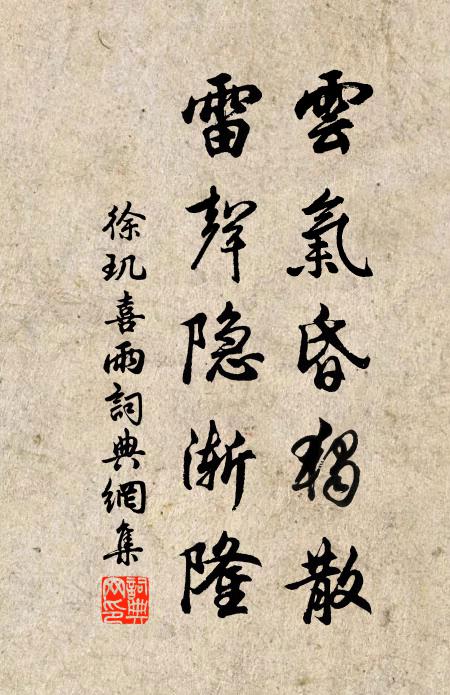 雲氣昏猶散
雷聲隐漸隆
徐玑喜雨詞典網集
詞典网印